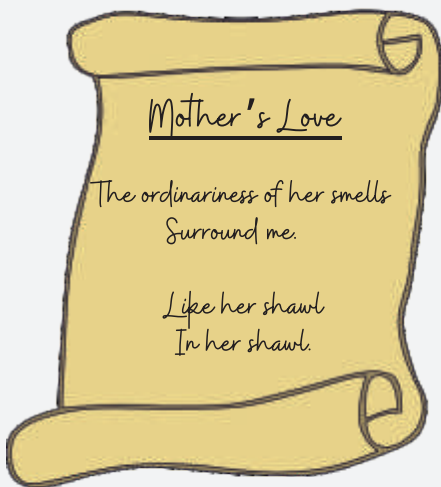 Mother's Love
The ordinariness of her smells
Surround me.
Like her shawl
In her shawl.